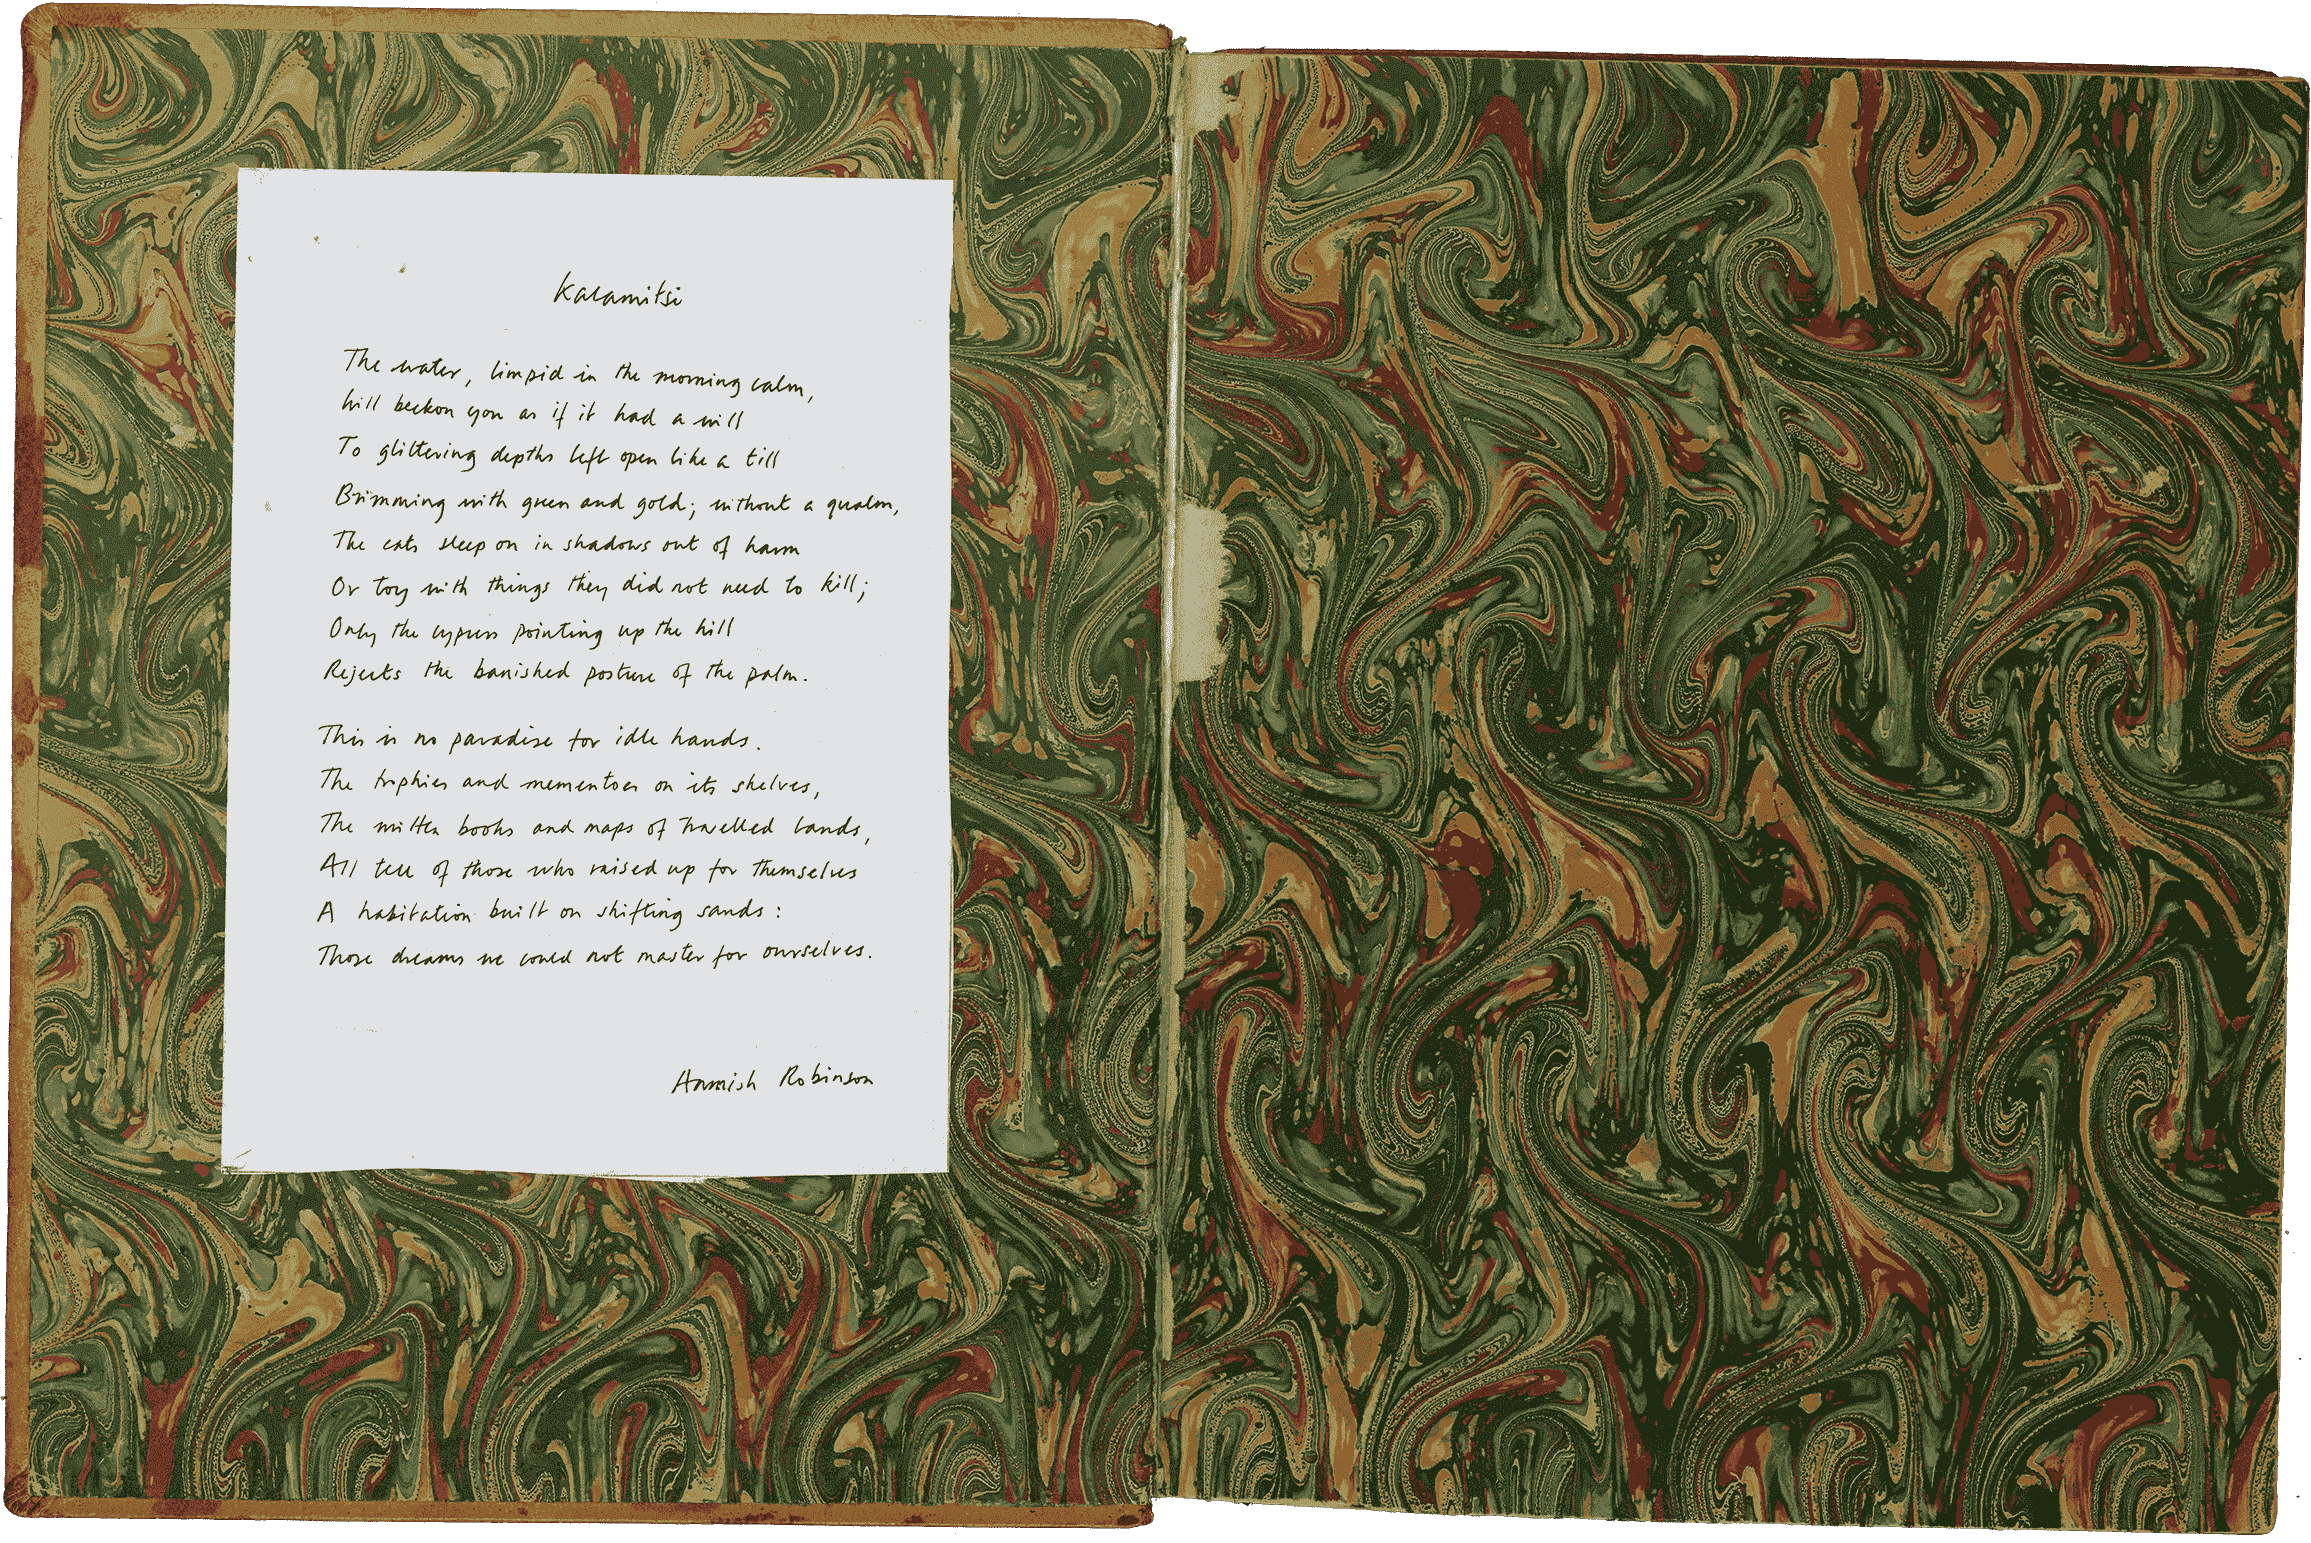 Kalamitsi
The water, limpid in the morning calm,
Will beckon you as if it had a will
To glittering depths left open like a till
Brimming with green and gold; without a qualm,
The cats sleep on in shadows out of harm
Or toy with things they did not need to kill;
Only the cypress pointing up the hill
Rejects the banished posture of the palm.
This is no paradise for idle hands.
The trophies and mementoes on its shelves,
The written books and maps of travelled lands,
All tell of those who raised up for themselves
A habitation built on shifting sands:
Those dreams we could not master for ourselves.
Hamish Robinson